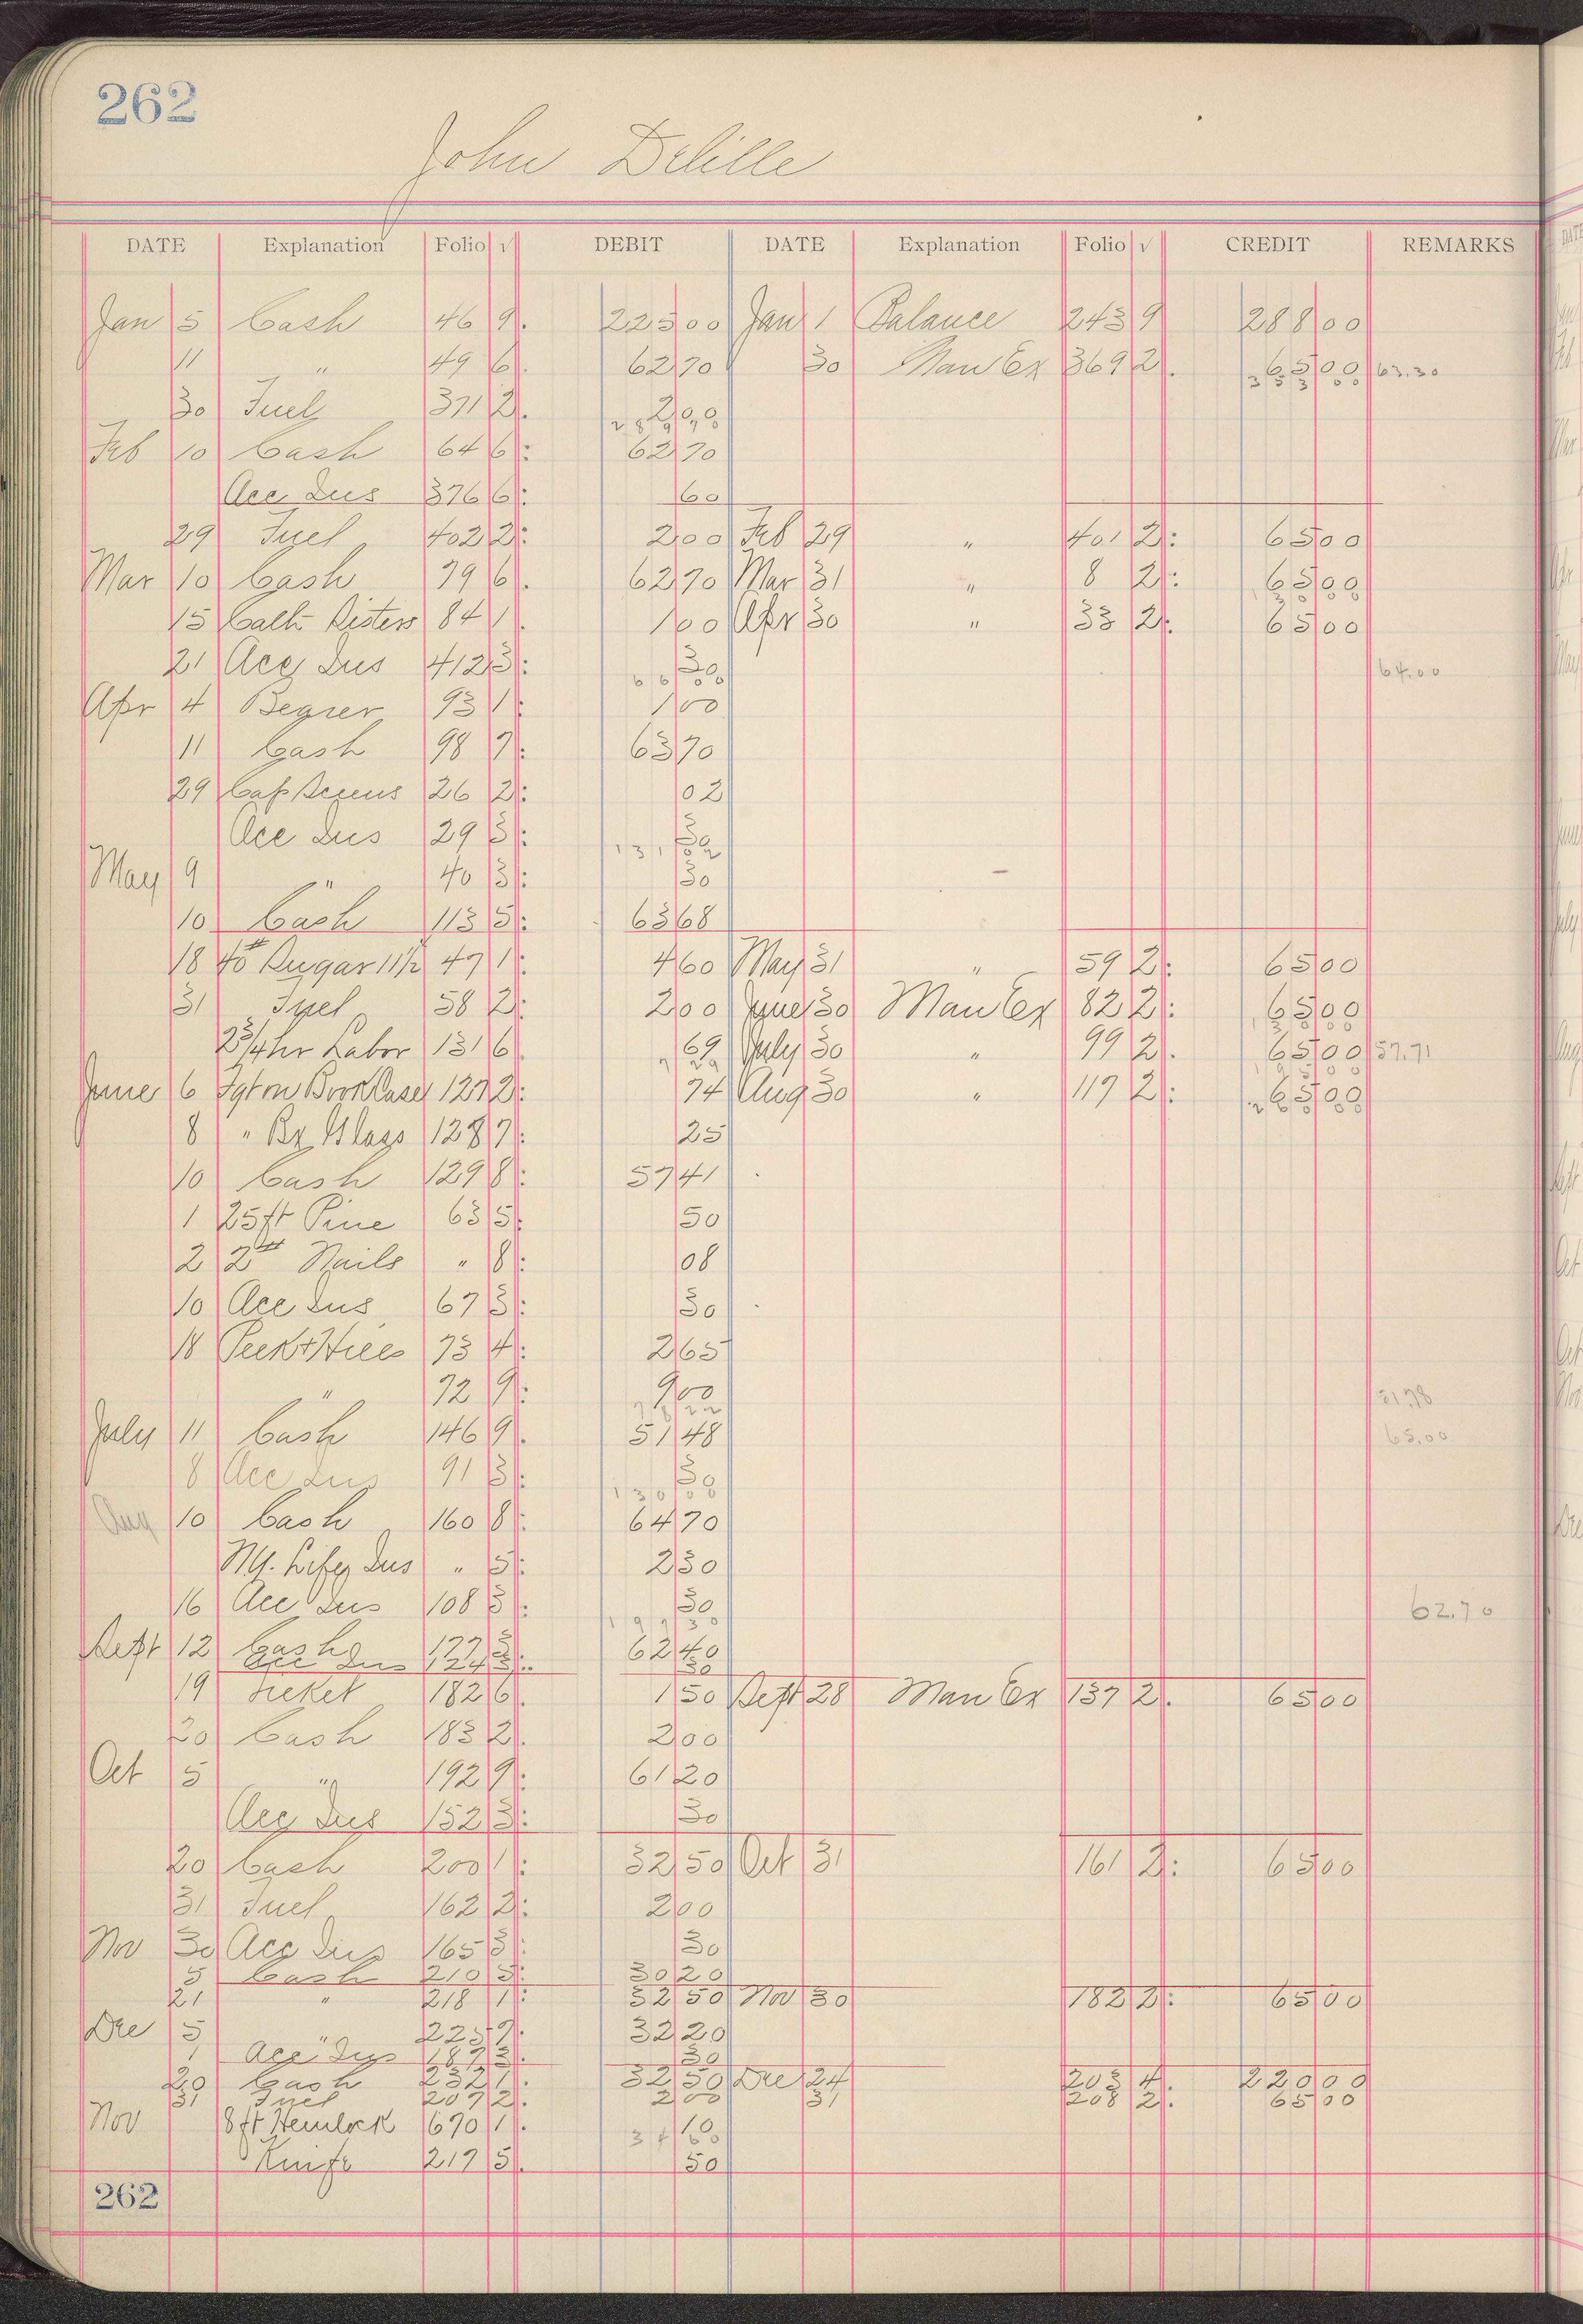 262
John Delille
DATE Explanation Folio √ DEBIT DATE Explanation Folio √ CREDIT REMARKS
Jan 5 Cash 46 9. 225 00 Jan 1 Balance 243 9 288 00
11 " 49 6. 62 70 30 Man Ex 369 2. 65 00 63.30
353 00
30 Fuel 371 2. 2 00
289 70
Feb 10 Cash 64 6: 62 70
Acc Ins 376 6: 60
29 Fuel 402 2: 2 00 Feb 29 " 401 2: 65 00
Mar 10 Cash 79 6. 62 70 Mar 31 " 8 2: 65 00
130 00
15 Cath Sisters 84 1. 1 00 Apr 30 " 33 2: 65 00
21 Acc Ins 412 3: 30 64.00
66 00
Apr 4 Begrer 93 1: 1 00
11 Cash 98 7: 63 70
29 Cap Screws 26 2: 02
Acc Ins 29 3: 30
131 02
May 9 " 40 3: 30
10 Cash 113 5: 63 68
18 40# Sugar 11½ 47 1: 4 60 May 31 " 59 2: 65 00
31 Fuel 58 2: 2 00 June 30 Man Ex 82 2: 65 00
130 00
2¾ hr Labor 131 6. 69 July 30 " 99 2. 65 00 57.71
7 29 195 00
June 6 Fgt on Book Case 127 2: 74 Aug 30 " 117 2: 65 00
260 00
8 " Bx Glass 128 7: 25
10 Cash 129 8: 57 41
1 25 ft Pine 63 5: 50
2 2# Nails " 8: 08
10 Acc Ins 67 3: 30
18 Peek + Hills 73 4: 2 65
" 72 9: 9 00 51.78
78 22
July 11 Cash 146 9. 51 48 65.00
8 Acc Ins 91 3: 30
130 00
Aug 10 Cash 160 8: 64 70
N.Y. Life Ins " 5: 2 30
16 Acc Ins 108 3: 30 62.70
197 30
Sept 12 Cash 177 3: 62 40
Acc Ins 124 3: 30
19 Ticket 182 6. 1 50 Sept 28 Man Ex 137 2. 65 00
20 Cash 183 2. 2 00
Oct 5 " 192 9: 61 20
Acc Ins 152 3: 30
20 Cash 200 1: 32 50 Oct 31 161 2: 65 00
31 Fuel 162 2: 2 00
Nov 30 Acc Ins 165 3: 30
5 Cash 210 5: 30 20
21 " 218 1: 32 50 Nov 30 182 2: 65 00
Dec 5 " 225 7: 32 20
1 Acc Ins 187 3. 30
20 Cash 232 1. 32 50 Dec 24 203 4. 220 00
31 Fuel 207 2. 2 00 31 208 2. 65 00
Nov 8 ft Hemlock 670 1. 10
34 60
Knife 217 5. 50
262